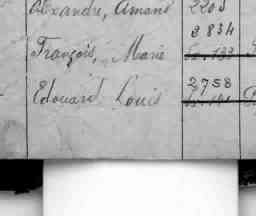 Alexandre, Amand 2205
2834
François, Marie
2758
Edouard Louis